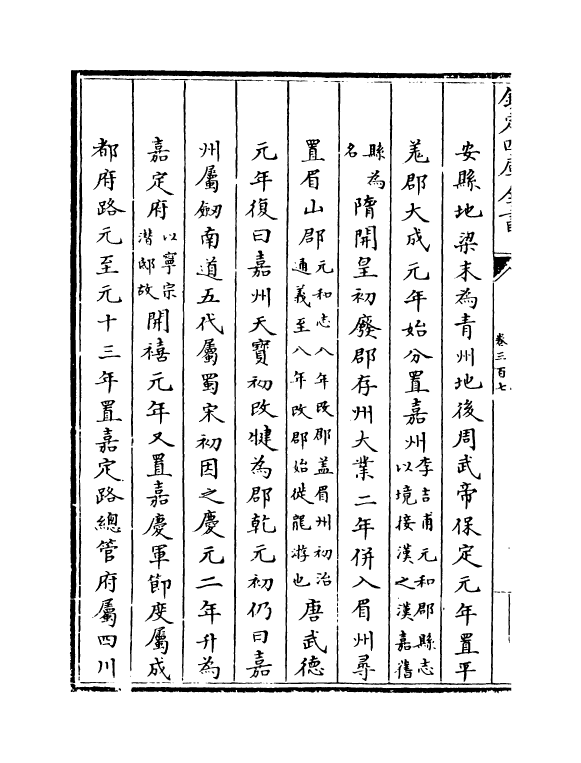 欽定四庫全書
卷三百七
安縣地梁末為青州地後周武帝保定元年置平
羗郡大成元年始分置嘉州李吉甫元和郡縣志以境接漢之漢嘉舊
縣為名隋開皇初廢郡存州大業二年併入眉州尋
置眉山郡元和志八年改郡蓋眉州初治通義至八年改郡始徙龍游也唐武德
元年復曰嘉州天寶初改犍為郡乾元初仍曰嘉
州屬劒南道五代屬蜀宋初因之慶元二年升為
嘉定府以寧宗潛邸故開禧元年又置嘉慶軍節度屬成
都府路元至元十三年置嘉定路總管府屬四川